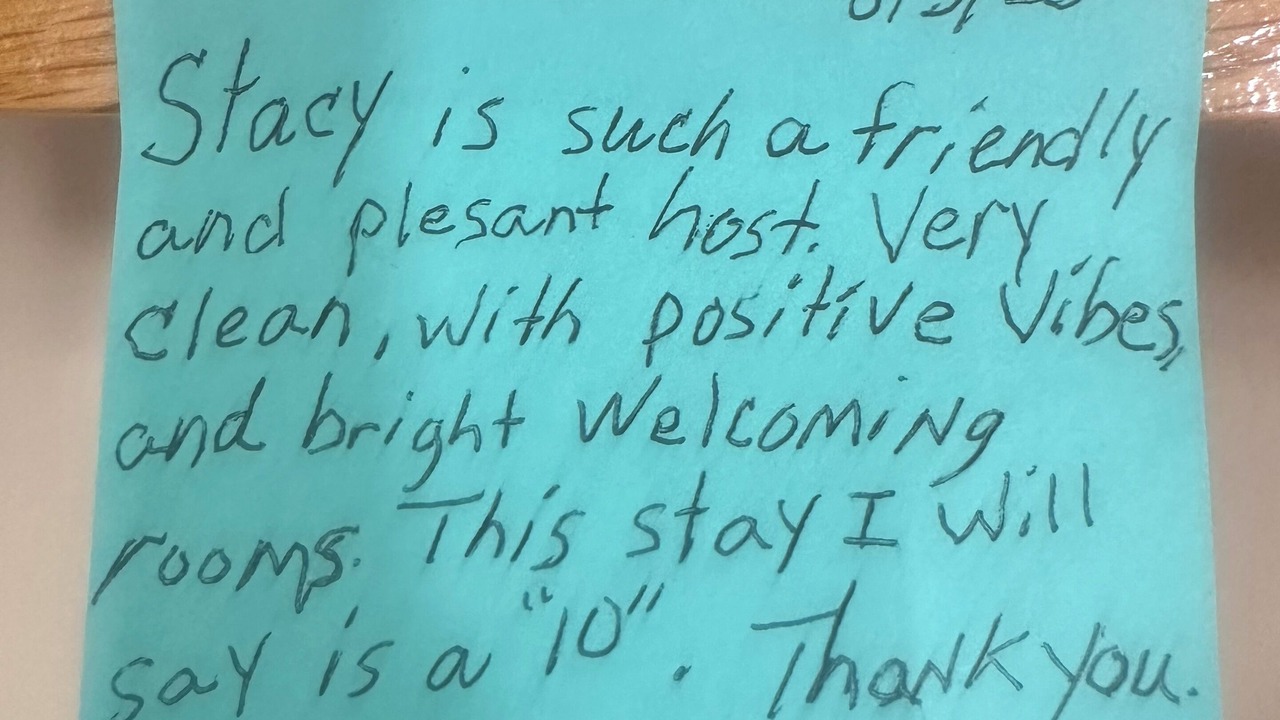 Stacy is such a friendly
and plesant host. Very
clean, with positive Vibes,
and bright Welcoming
rooms. This stay I will
say is a "10". Thank you.